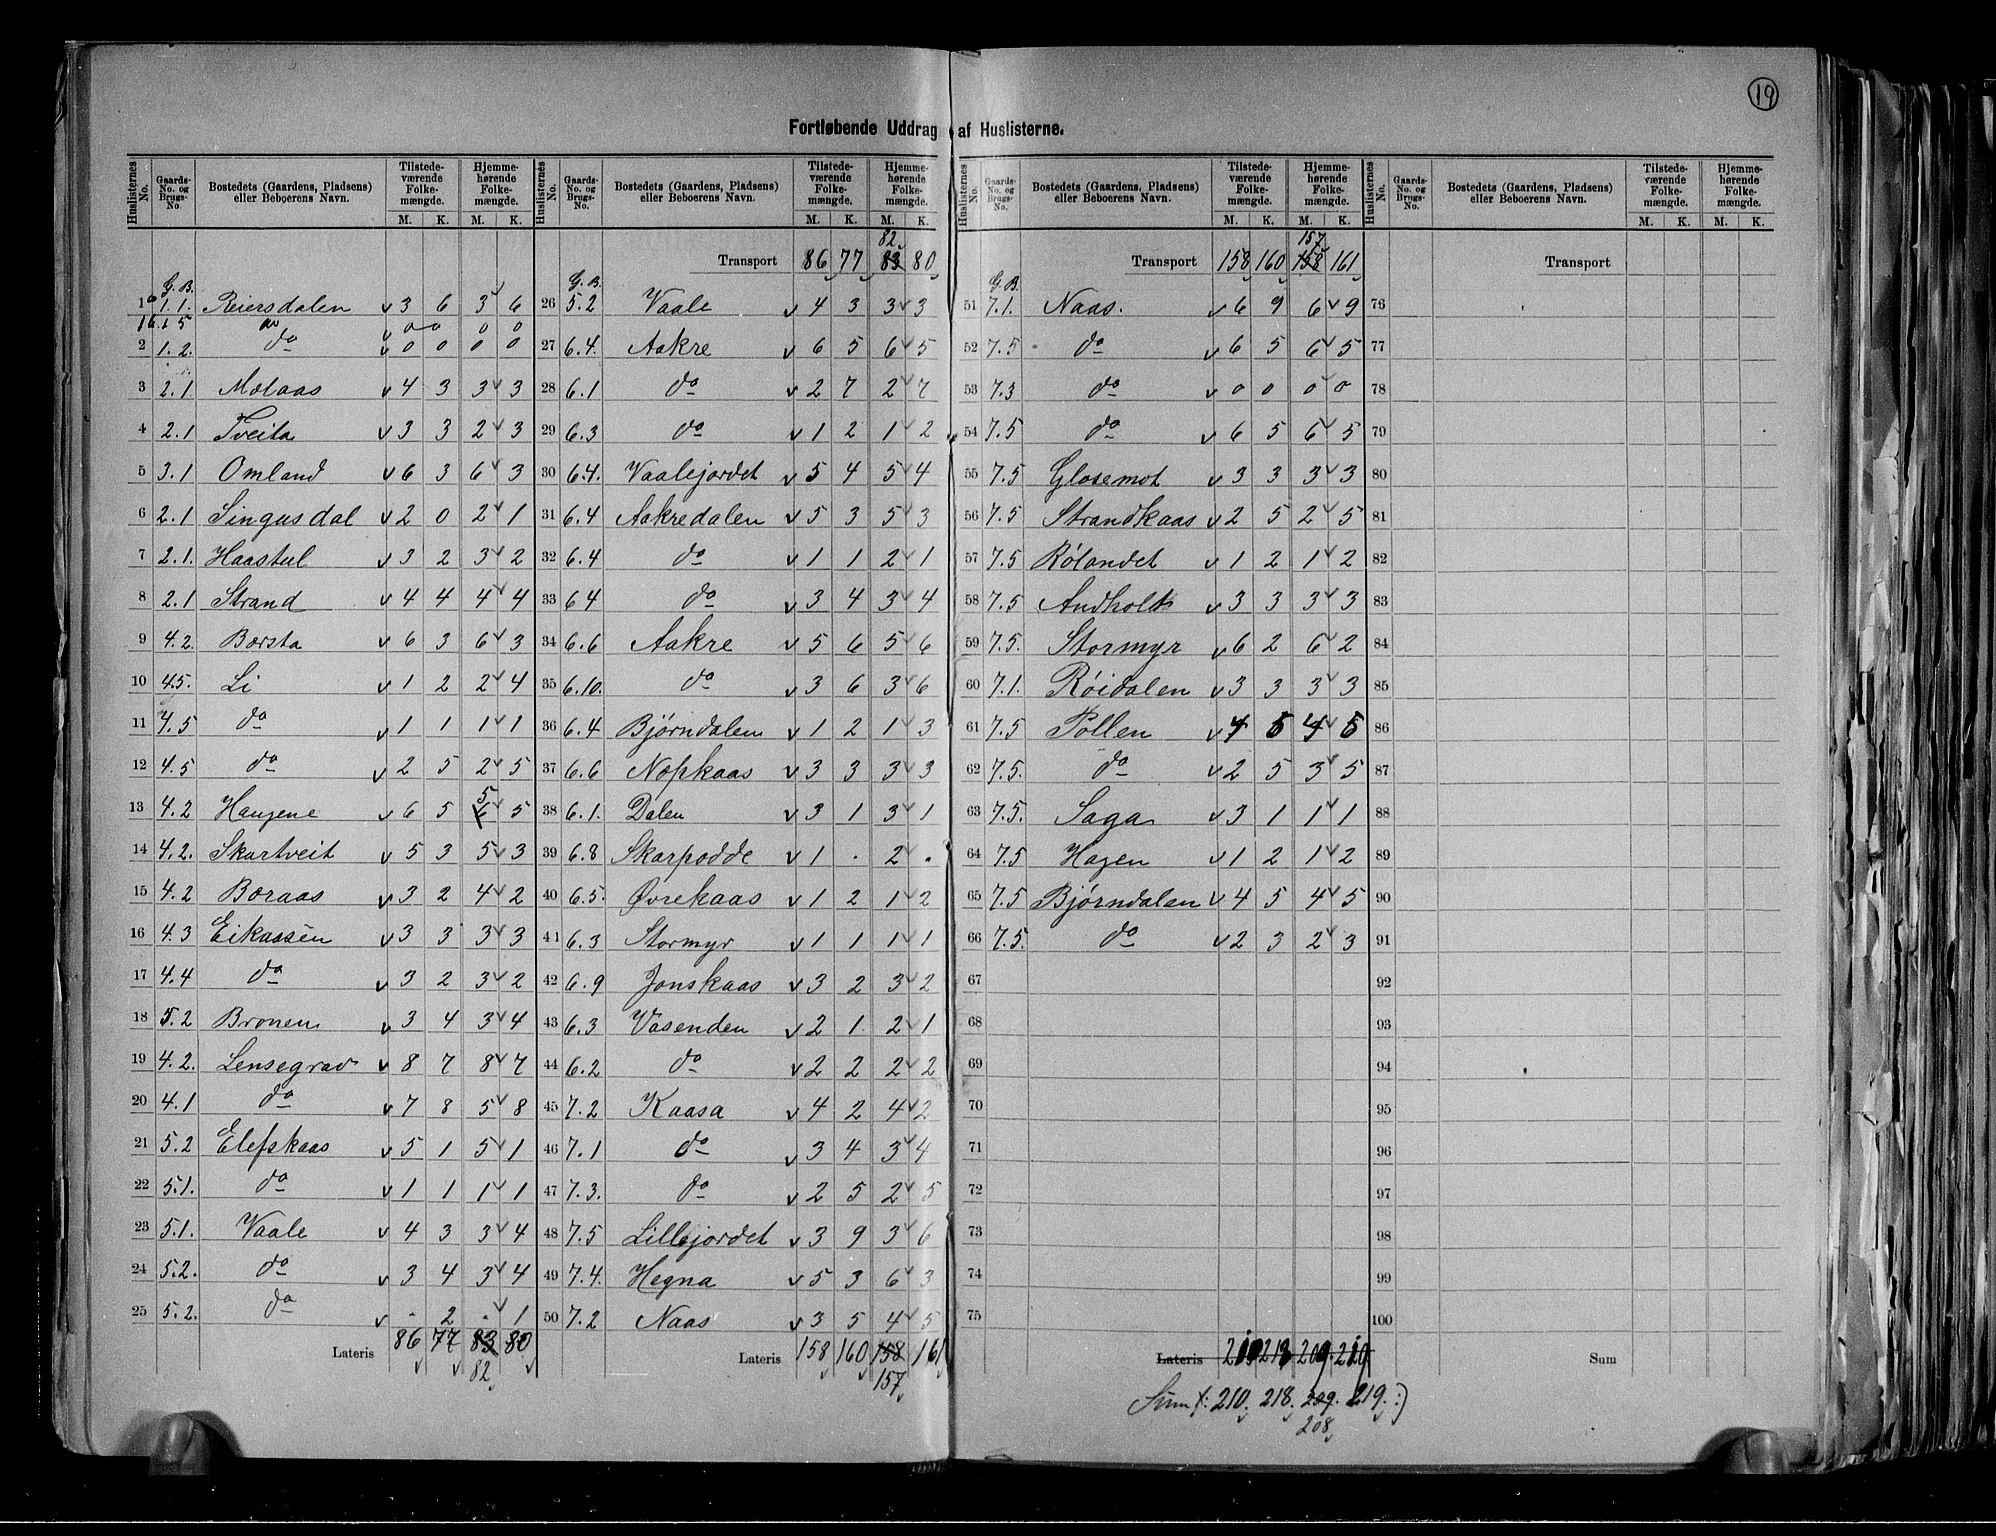 19
Fortløbende Uddrag af Huslisterne.
Huslisternes No. Gaards-No. og Brugs-No. Bostedets (Gaardens, Pladsens) eller Beboerens Navn. Tilstedeværende Folkemængde. Hjemmehørende Folkemængde.
M. K. M. K.
G. B.
1a 1.1. Reiersdalen v 3 6 3 6
1b 1.5 do v 0 0 0 0
2 1.2. v 0 0 0 0
3 2.1 Molaas v 4 3 3 3
4 2.1 Tveita v 3 3 2 3
5 3.1 Omland v 6 3 6 3
6 2.1 Singusdal v 2 0 2 1
7 2.1. Haastul v 3 2 3 2
8 2.1 Strand v 4 4 4 4
9 4.2. Borsta v 6 3 6 3
10 4.5. Li v 1 2 2 4
11 4.5 do v 1 1 1 1
12 4.5 do v 2 5 2 5
13 4.2 Haugene v 6 5 6 5 5
14 4.2. Skartveit v 5 3 5 3
15 4.2 Boraas v 3 2 4 2
16 4.3 Eikaasen v 3 3 3 3
17 4.4 do v 3 2 3 2
18 5.2 Bronen v 3 4 3 4
19 4.2. Lensegrav v 8 7 8 7
20 4.1 do v 7 8 5 8
21 5.2 Elefskaas v 5 1 5 1
22 5.1. do v 1 1 1 1
23 5.1. Vaale v 4 3 3 4
24 5.2. do v 3 4 3 4
25 5.2. do v . 2 . 1
Lateris 86 77 83 80
82
Huslisternes No. Gaards-No. og Brugs-No. Bostedets (Gaardens, Pladsens) eller Beboerens Navn. Tilstedeværende Folkemængde. Hjemmehørende Folkemængde.
M. K. M. K.
82
Transport 86 77 83 80
G. B.
26 5.2 Vaale v 4 3 3 3
27 6.4. Aakre v 6 5 6 5
28 6.1 do v 2 7 2 7
29 6.3 do v 1 2 1 2
30 6.4. Vaalejordet v 5 4 5 4
31 6.4 Aakredalen v 5 3 5 3
32 6.4 do v 1 1 2 1
33 6 4 do v 3 4 3 4
34 6.6 Aakre v 5 6 5 6
35 6.10. do v 3 6 3 6
36 6.4 Bjørndalen v 1 2 1 3
37 6.6 Nopkaas v 3 3 3 3
38 6.1. Dalen v 3 1 3 1
39 6.8 Skarpodde v 1 . 2 .
40 6.5. Øvrekaas v 1 2 1 2
41 6.3 Stormyr v 1 1 1 1
42 6.9 Jonskaas v 3 2 3 2
43 6.3 Vasenden v 2 1 2 1
44 6.2 do v 2 2 2 2
45 7.2 Kaasa v 4 2 4 2
46 7.1 do v 3 4 3 4
47 7.3. do v 2 5 2 5
48 7.5 Lillejordet v 3 9 3 6
49 7.4. Hegna v 5 3 6 3
50 7.2 Naas v 3 5 4 5
Lateris 158 160 158 161
157
Huslisternes No. Gaards-No. og Brugs-No. Bostedets (Gaardens, Pladsens) eller Beboerens Navn. Tilstedeværende Folkemængde. Hjemmehørende Folkemængde.
M. K. M. K.
157
Transport 158 160 158 161
G. B.
51 7.1. Naas. v 6 9 6 9
52 7.5 do v 6 5 6 5
53 7.3 do v 0 0 0 0
54 7.5 do v 6 5 6 5
55 7.5 Glosemot v 3 3 3 3
56 7.5 Strandkaas v 2 5 2 5
57 7.5 Rølandet v 1 2 1 2
58 7.5 Andholt v 3 3 3 3
59 7.5. Stormyr v 6 2 6 2
60 7.1. Røidalen v 3 3 3 3
61 7.5 Pollen v 4 5 4 5
62 7.5. do v 2 5 3 5
63 7.5. Saga v 3 1 1 1
64 7.5 Hagen v 1 2 1 2
65 7.5 Bjørndalen v 4 5 4 5
66 7.5. do v 2 3 2 3
67
68
69
70
71
72
73
74
75
Lateris
Sum /: 210. 218. 209. 219. :/
208
Huslisternes No. Gaards-No. og Brugs-No. Bostedets (Gaardens, Pladsens) eller Beboerens Navn. Tilstedeværende Folkemængde. Hjemmehørende Folkemængde.
M. K. M. K.
Transport
76
77
78
79
80
81
82
83
84
85
86
87
88
89
90
91
92
93
94
95
96
97
98
99
100
Sum